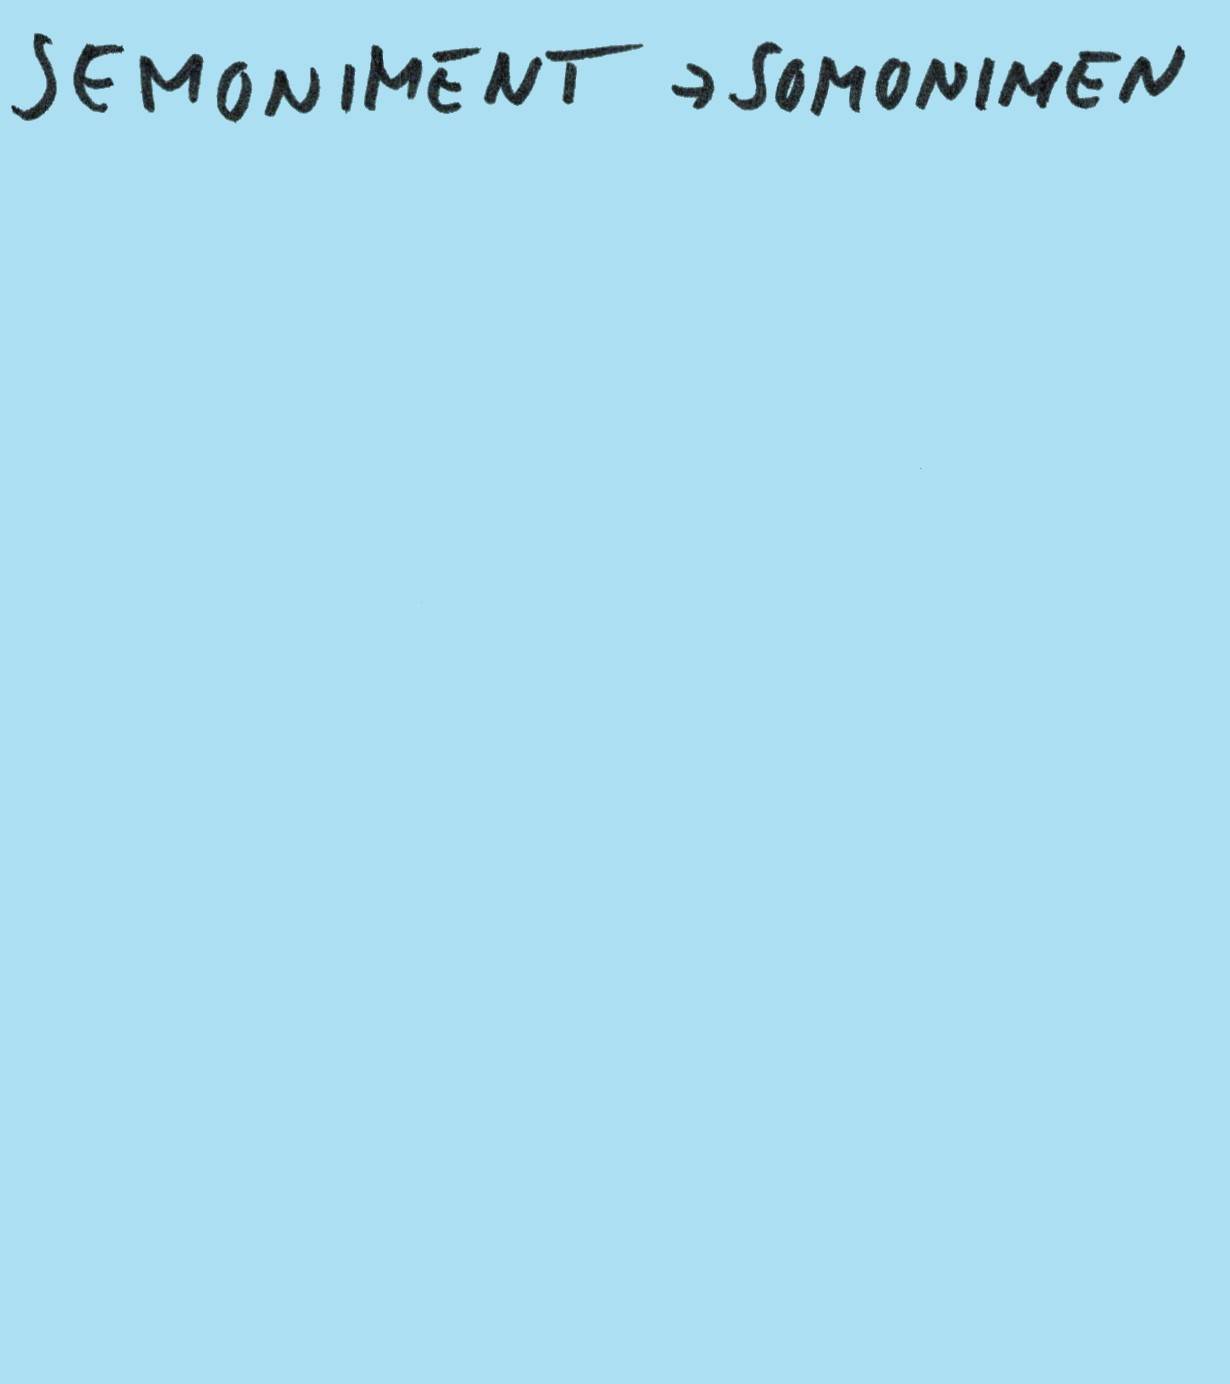 SEMONIMENT → SOMONIMEN